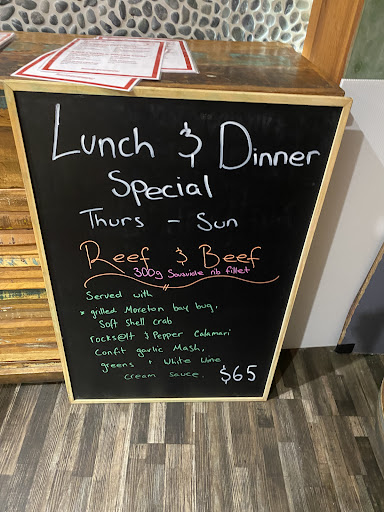 Lunch & Dinner
Special
Thurs - Sun
Reef & Beef
300g Sousvide rib fillet
Served with
* grilled Moreton bay bug,
Soft shell crab
rocksalt & Pepper Calamari
Confit garlic Mash,
greens + White Wine
cream sauce.
$65